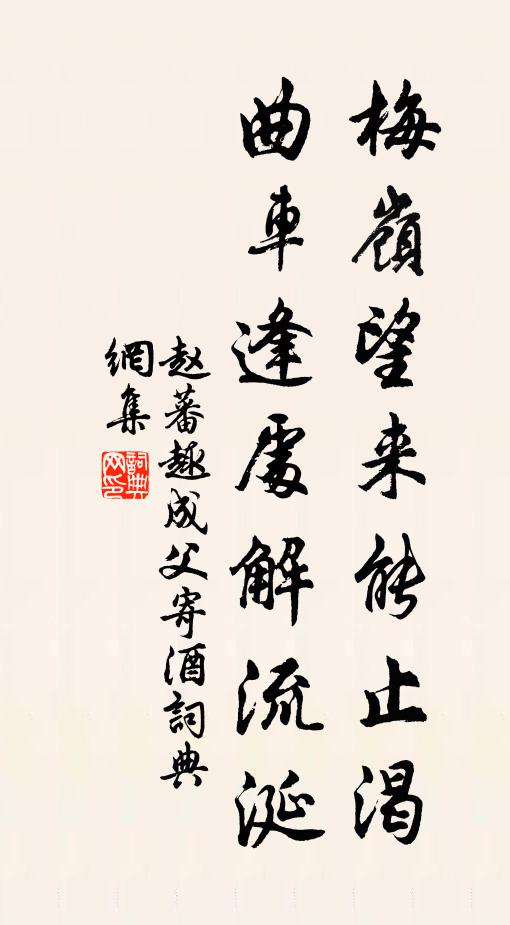 梅嶺望来能止渴
曲車逢處解流涎
赵蕃趣成父寄酒詞典
網集
詞典網印